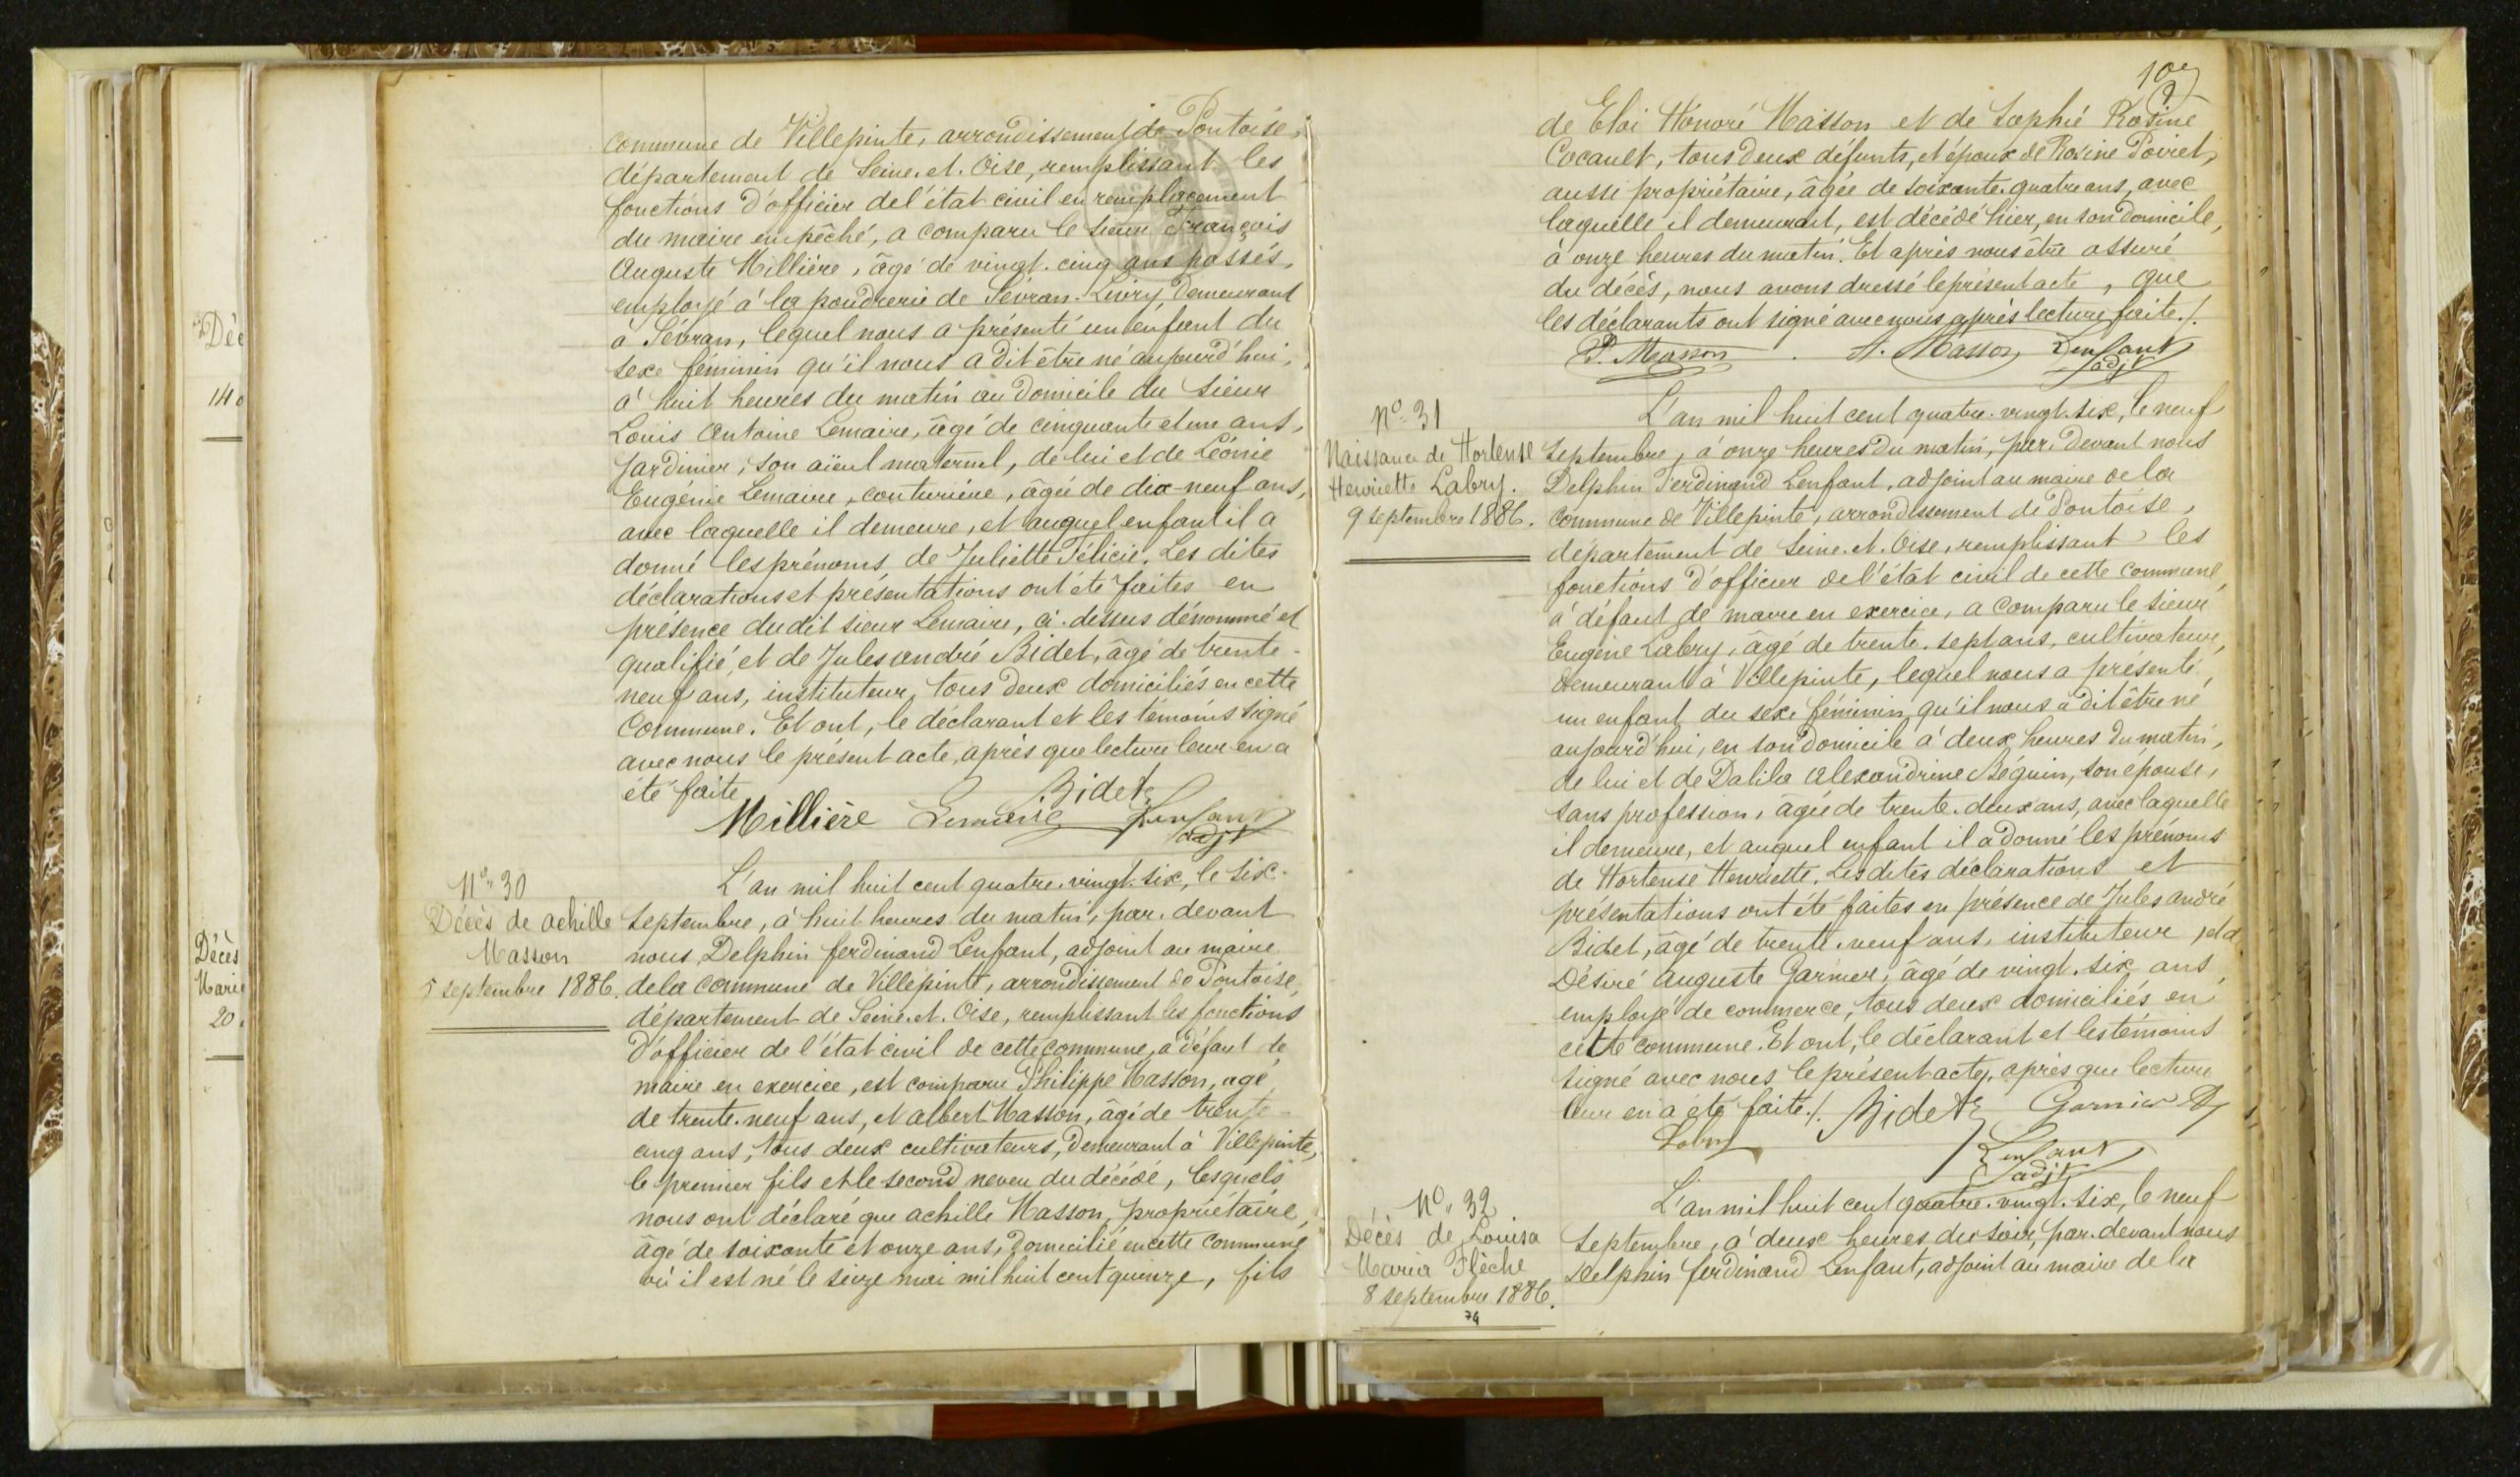 commune de Villepinte, arrondissement de Pontoise,
département de Seine-et-Oise, remplissant les
fonctions d'officier de l'état civil en remplacement
du maire empêché, a comparu le sieur François
Auguste Millière, âgé de vingt-cinq ans passés,
employé à la poudrerie de Sévran-Livry, demeurant
à Sévran, lequel nous a présenté un enfant du
sexe féminin qu'il nous a dit être né aujourd'hui,
à huit heures du matin au domicile du sieur
Louis Antoine Lemaire, âgé de cinquante et un ans,
jardinier, son aïeul maternel, de lui et de Léonie
Eugénie Lemaire, couturière, âgée de dix-neuf ans,
avec laquelle il demeure, et auquel enfant il a
donné les prénoms de Juliette Félicie. Les dites
déclarations et présentations ont été faites en
présence dudit sieur Lemaire, ci-dessus dénommé et
qualifié, et de Jules andré Bidet, âgé de trente-
neuf ans, instituteur, tous deux domiciliés en cette
Commune. Et ont, le déclarant et les témoins signé
avec nous le présent acte, après que lecture leur en a
été faite
Bidet
Millière Lemaire Lenfant
adjt
N° 30
Décès de achille
Masson
5 septembre 1886.
L'an mil huit cent quatre-vingt-six, le six
Septembre, à huit heures du matin, par-devant
nous Delphin ferdinand Lenfant, adjoint au maire
de la commune de Villepinte, arrondissement de Pontoise,
département de Seine-et-Oise, remplissant les fonctions
d'officier de l'état civil de cette commune, à défaut de
maire en exercice, est comparu Philippe Masson, agé
de trente-neuf ans, et albert Masson, âgé de trente-
cinq ans, tous deux cultivateurs, demeurant à Villepinte,
le premier fils et le second neveu du décédé, lesquels
nous ont déclaré que achille Masson, propriétaire,
âgé de soixante et onze ans, domicilié en cette commune
où il est né le seize mai mil huit cent quinze, fils
Déc
14
Décès
Marie
20
109
de Eloi Honoré Masson et de Sophie Rosine
Cocault, tous deux défunts, et époux de Rosine Poiret,
aussi propriétaire, âgée de soixante-quatre ans, avec
laquelle il demeurait, est décédé hier, en son domicile,
à onze heures du matin. Et après nous être assuré
du décès, nous avons dressé le présent acte, que
les déclarants ont signé avec nous après lecture faite./.
P. Masson A. Masson Lenfant
adjt
N° 31
Naissance de Hortense
Henriette Labry.
9 septembre 1886.
L'an mil huit cent quatre-vingt-six, le neuf
Septembre, à onze heures du matin, par-devant nous
Delphin Ferdinand Lenfant, adjoint au maire de la
commune de Villepinte, arrondissement de Pontoise,
département de Seine-et-Oise, remplissant les
fonctions d'officier de l'état civil de cette commune,
à défaut de maire en exercice, a comparu le sieur
Eugène Labry, âgé de trente-sept ans, cultivateur,
demeurant à Villepinte, lequel nous a présenté
un enfant du sexe féminin, qu'il nous a dit être né
aujourd'hui, en son domicile à deux heures du matin,
de lui et de Dalila Alexandrine Béguin, son épouse,
sans profession, âgée de trente-deux ans, avec laquelle
il demeure, et auquel enfant il a donné les prénoms
de Hortense Henriette. Les dites déclarations et
présentations ont été faites en présence de Jules andré
Bidet, âgé de trente-neuf ans, instituteur, et
Désiré auguste Garnier, âgé de vingt-six ans
employé de commerce, tous deux domiciliés en
cette commune. Et ont, le déclarant et les témoins
signé avec nous le présent acte, après que lecture
leur en a été faite./. Bidet Garnier
Labry
Lenfant
adjt
N° 32
Décès de Louisa
Maria Flèche
8 septembre 1886.
74
L'an mil huit cent quatre-vingt-six, le neuf
Septembre, à deux heures du soir, par-devant nous
Delphin ferdinand Lenfant, adjoint au maire de la